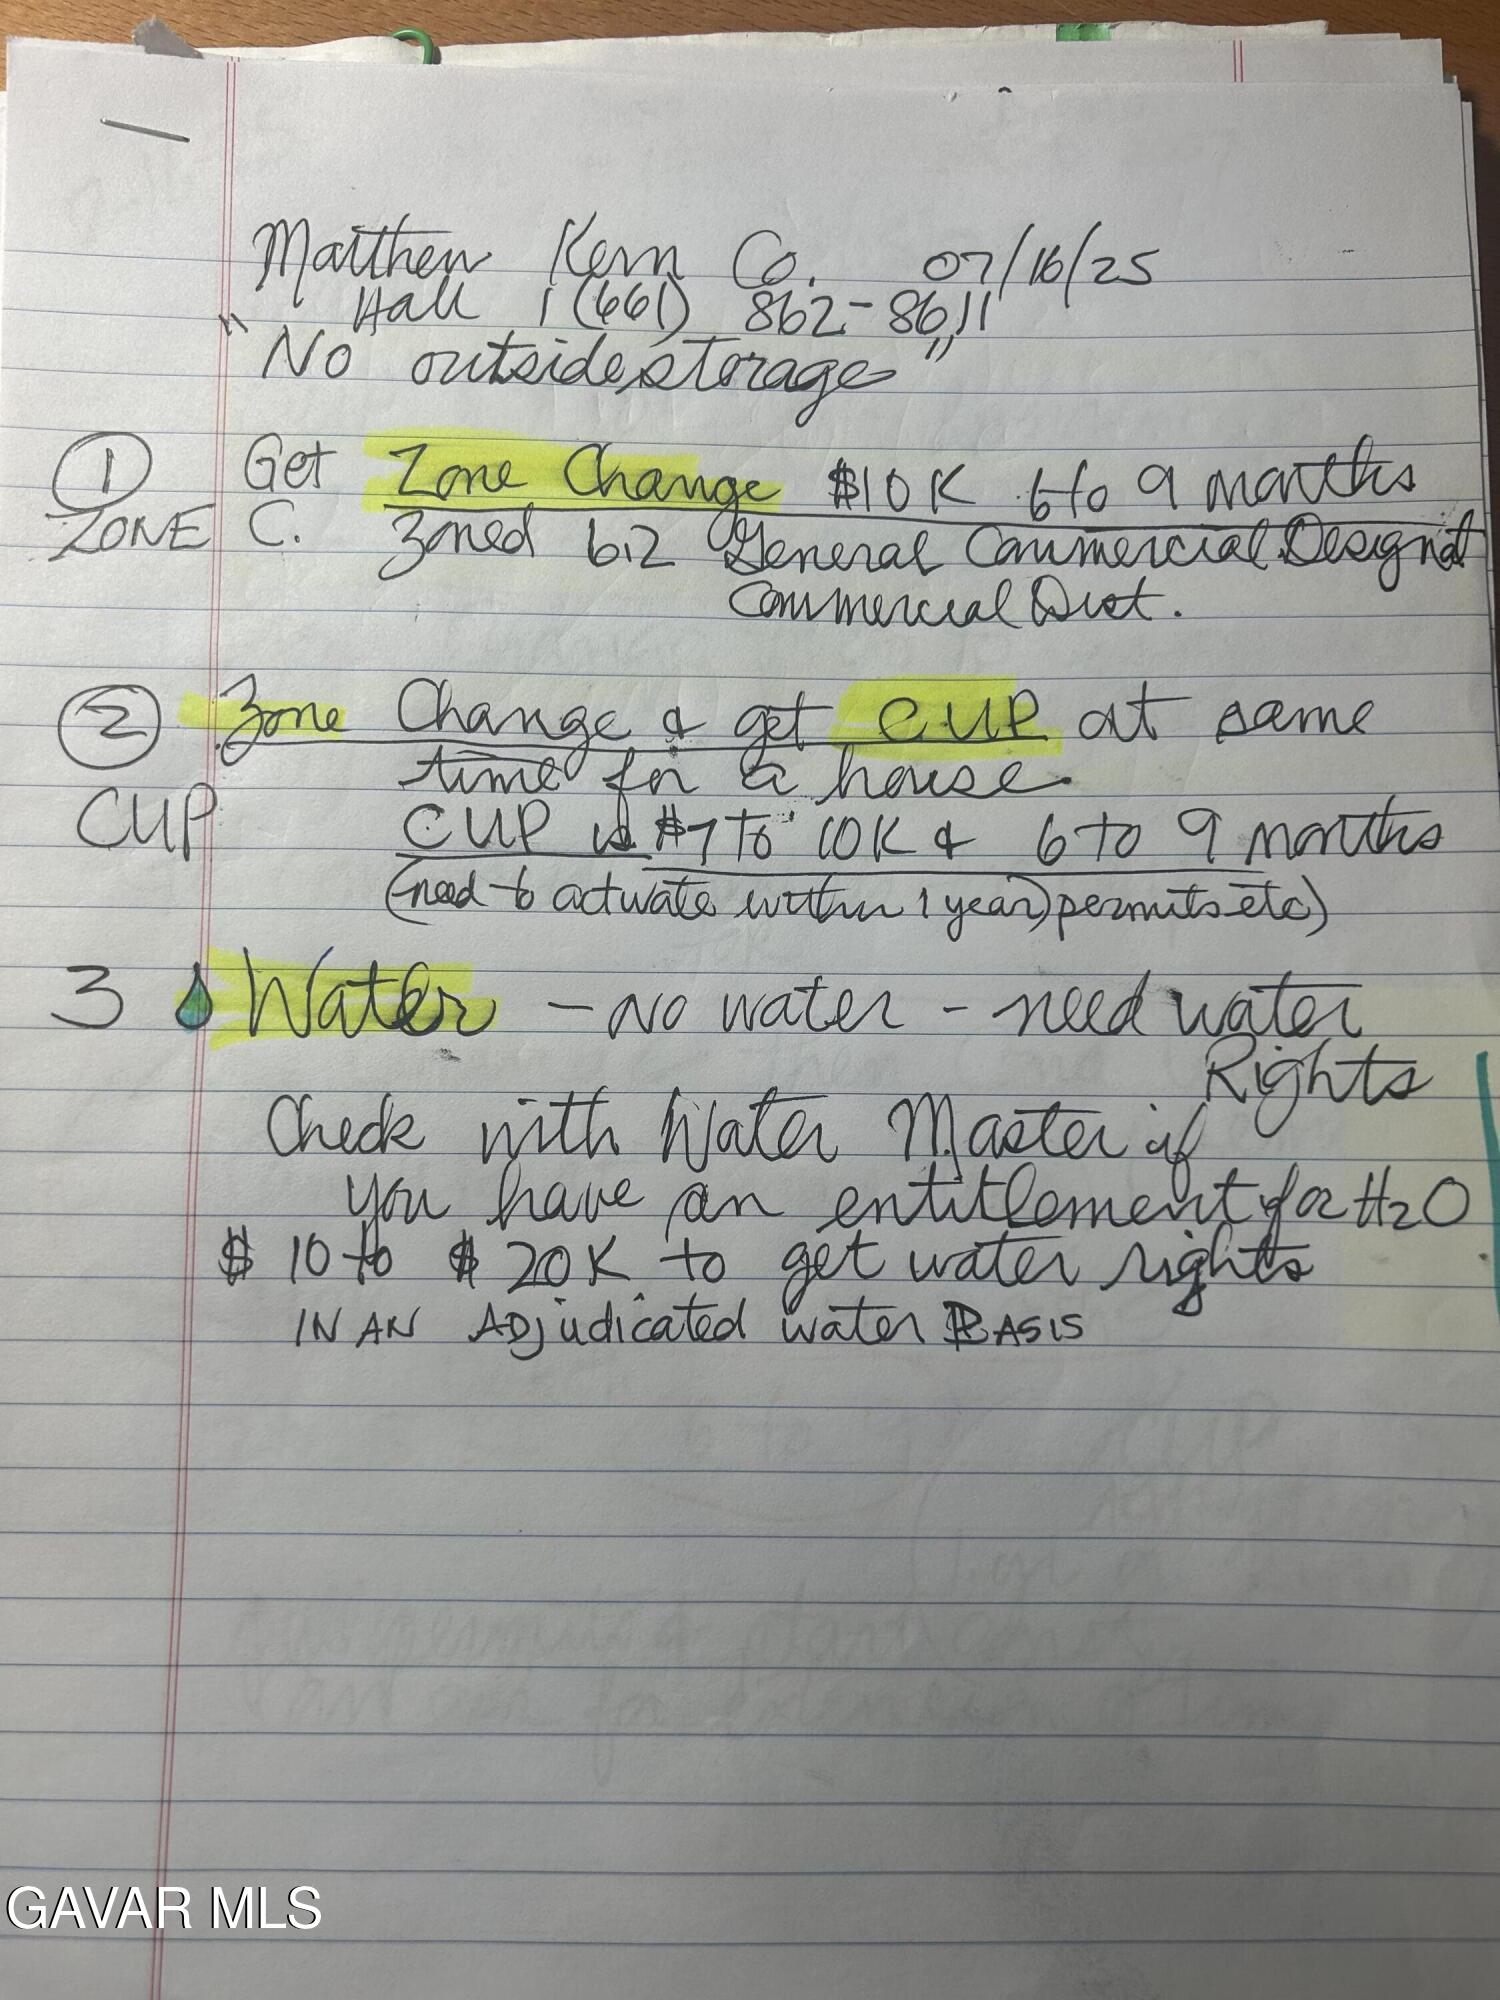 Matthew Kern Co. 07/16/25
Hall 1 (661) 862-8611
"No outside storage"
1 Get Zone Change $10K 6 to 9 months
ZONE C. Zoned 6.2 General Commercial Designat
Commercial Dist.
2 Zone Change & get CUP at same
time for a house.
CUP CUP is $7 to 10K & 6 to 9 months
(need to activate within 1 year) permits etc)
3 Water - No water - need water
Rights
Check with Water Master if
you have an entitlement for H2O
$ 10 to $ 20K to get water rights
IN AN Adjudicated water BASIS
GAVAR MLS